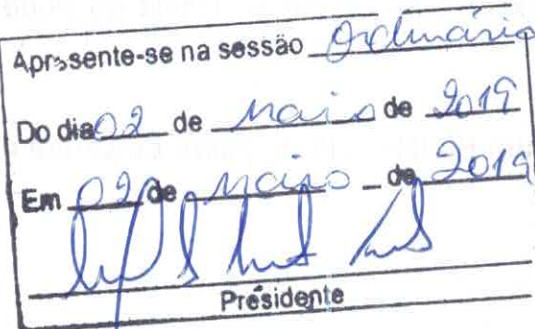 Apresente-se na sessão Ordinário
Do dia 02 de Maio de 2019
Em 02 de Maio de 2019
Presidente